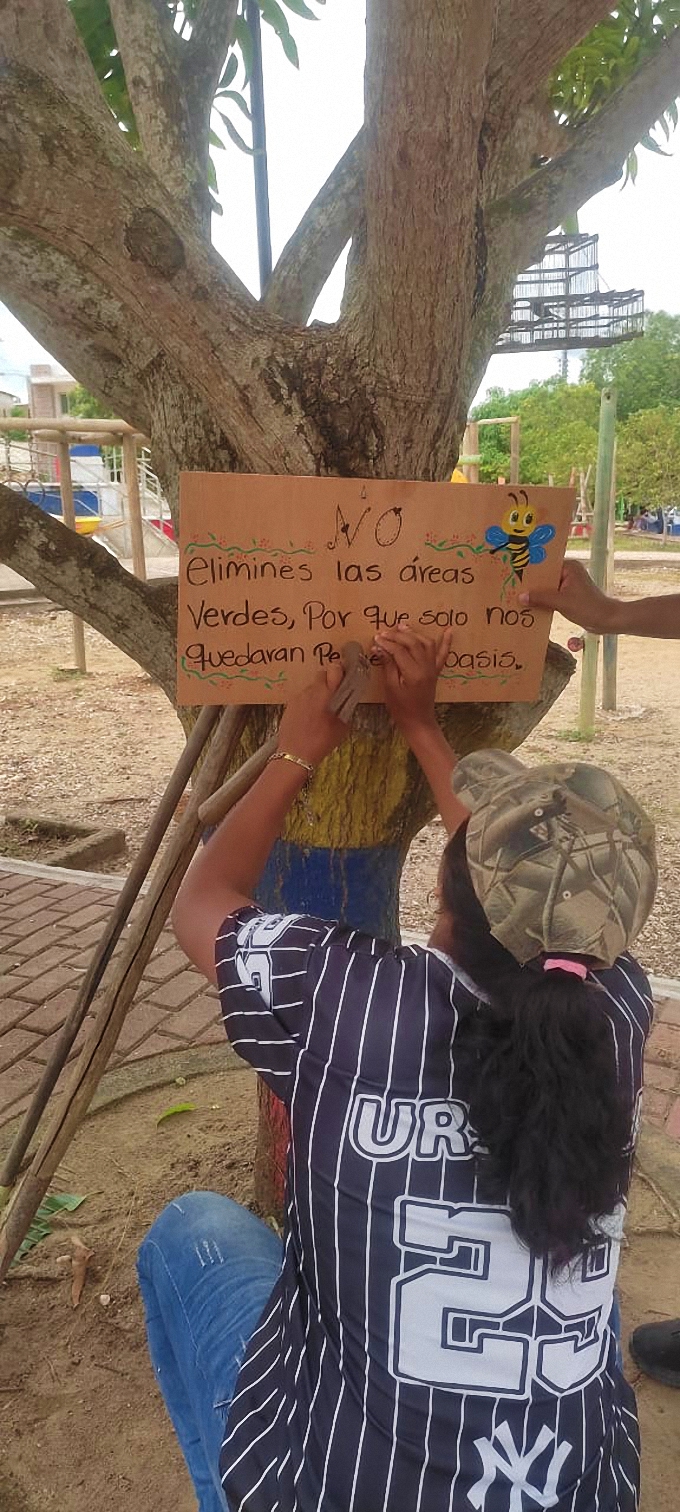 NO
elimines las áreas
Verdes, Por que solo nos
quedaran oasis.
29
NY